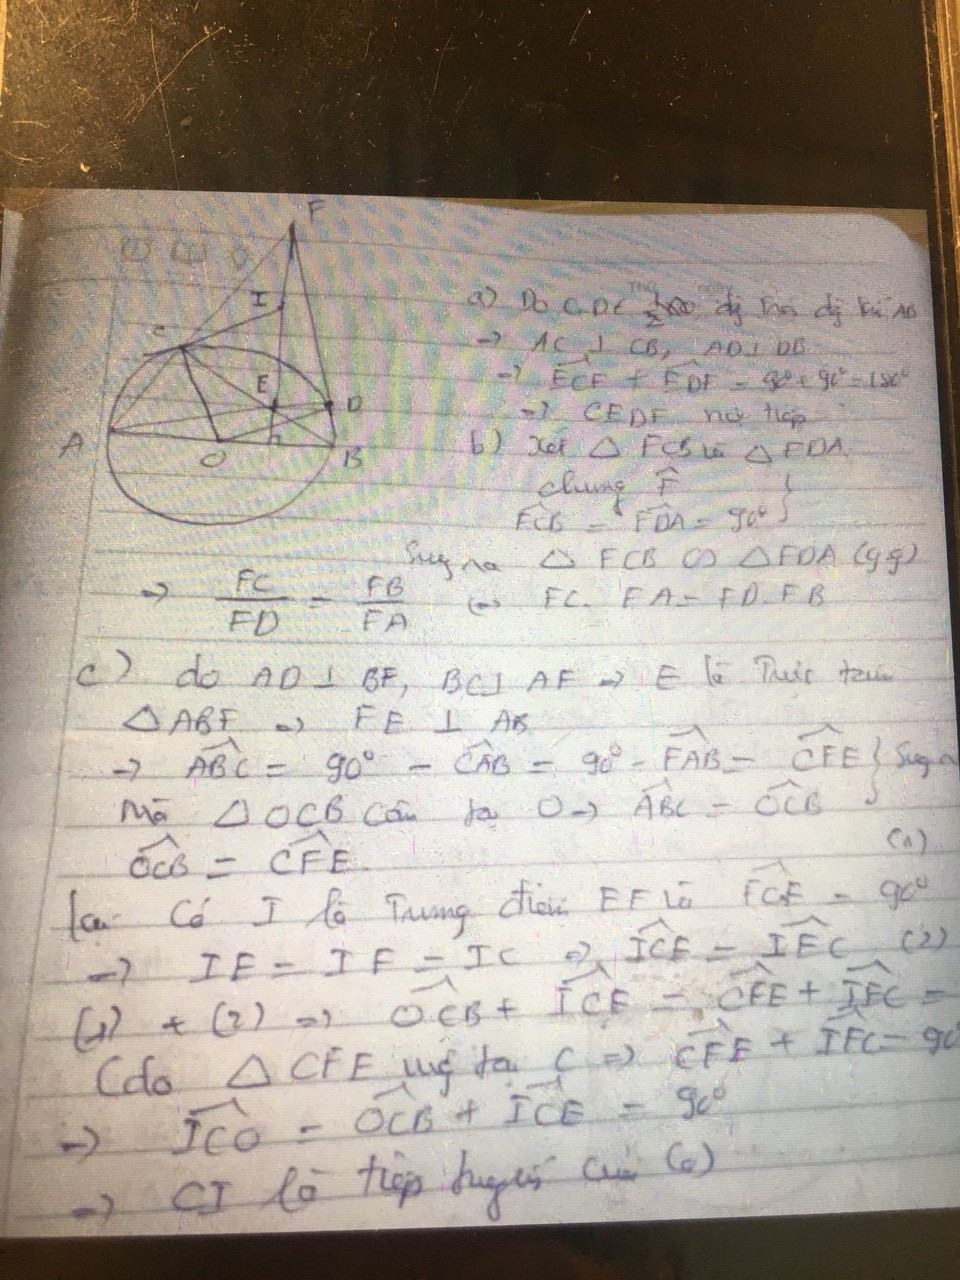 F
I
C
E
D
A
O
B
a) Do C, D ∈ đg tròn đg kính AB
→ AC ⊥ CB, AD ⊥ DB
→ ECF + EDF = 90° + 90° = 180°
→ CEDF nội tiếp
b) Xét △ FCB và △ FDA
chung F
FCB = FDA = 90°
Suy ra △ FCB ∽ △ FDA (gg)
→ FC/FD = FB/FA ⇔ FC. FA = FD. FB
c) do AD ⊥ BF, BC ⊥ AF → E là Trực tâm
△ ABF → FE ⊥ AB
→ ABC = 90° - CAB = 90° - FAB = CFE } Suy ra
Mà △ OCB cân tại O → ABC = OCB
OCB = CFE (1)
lại có I là Trung điểm EF và FCE = 90°
→ IE = IF = IC → ICE = IEC (2)
(1) + (2) → OCB + ICE = CFE + IEC =
(do △ CFE vg tại C → CFE + IEC = 90
→ ICO = OCB + ICE = 90°
→ CI là tiếp tuyến của (O)